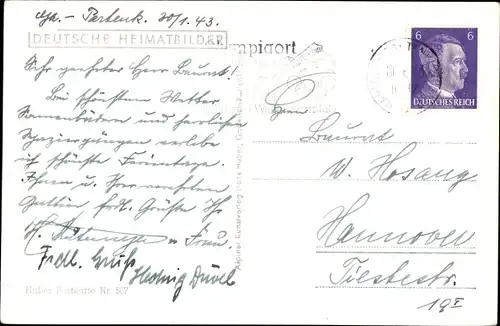 Ga.-Partenk. 30/1. 43.
DEUTSCHE HEIMATBILDER
Sehr geehrter Herr Baurat!
Bei schönstem Wetter
Sonnenbädern und herrlichen
Spaziergängen erlebe
ich schönste Ferientage.
Ihnen u. Ihrer verehrten
Gattin frdl. Grüße Ihr
u. Frau.
Frdl. Gruß
Hedwig Düvel
Huber Postkarte Nr. 507
6 6
DEUTSCHES REICH
Herrn
Baurat
W. Hosang
Hannover
Tiestestr.
19 I